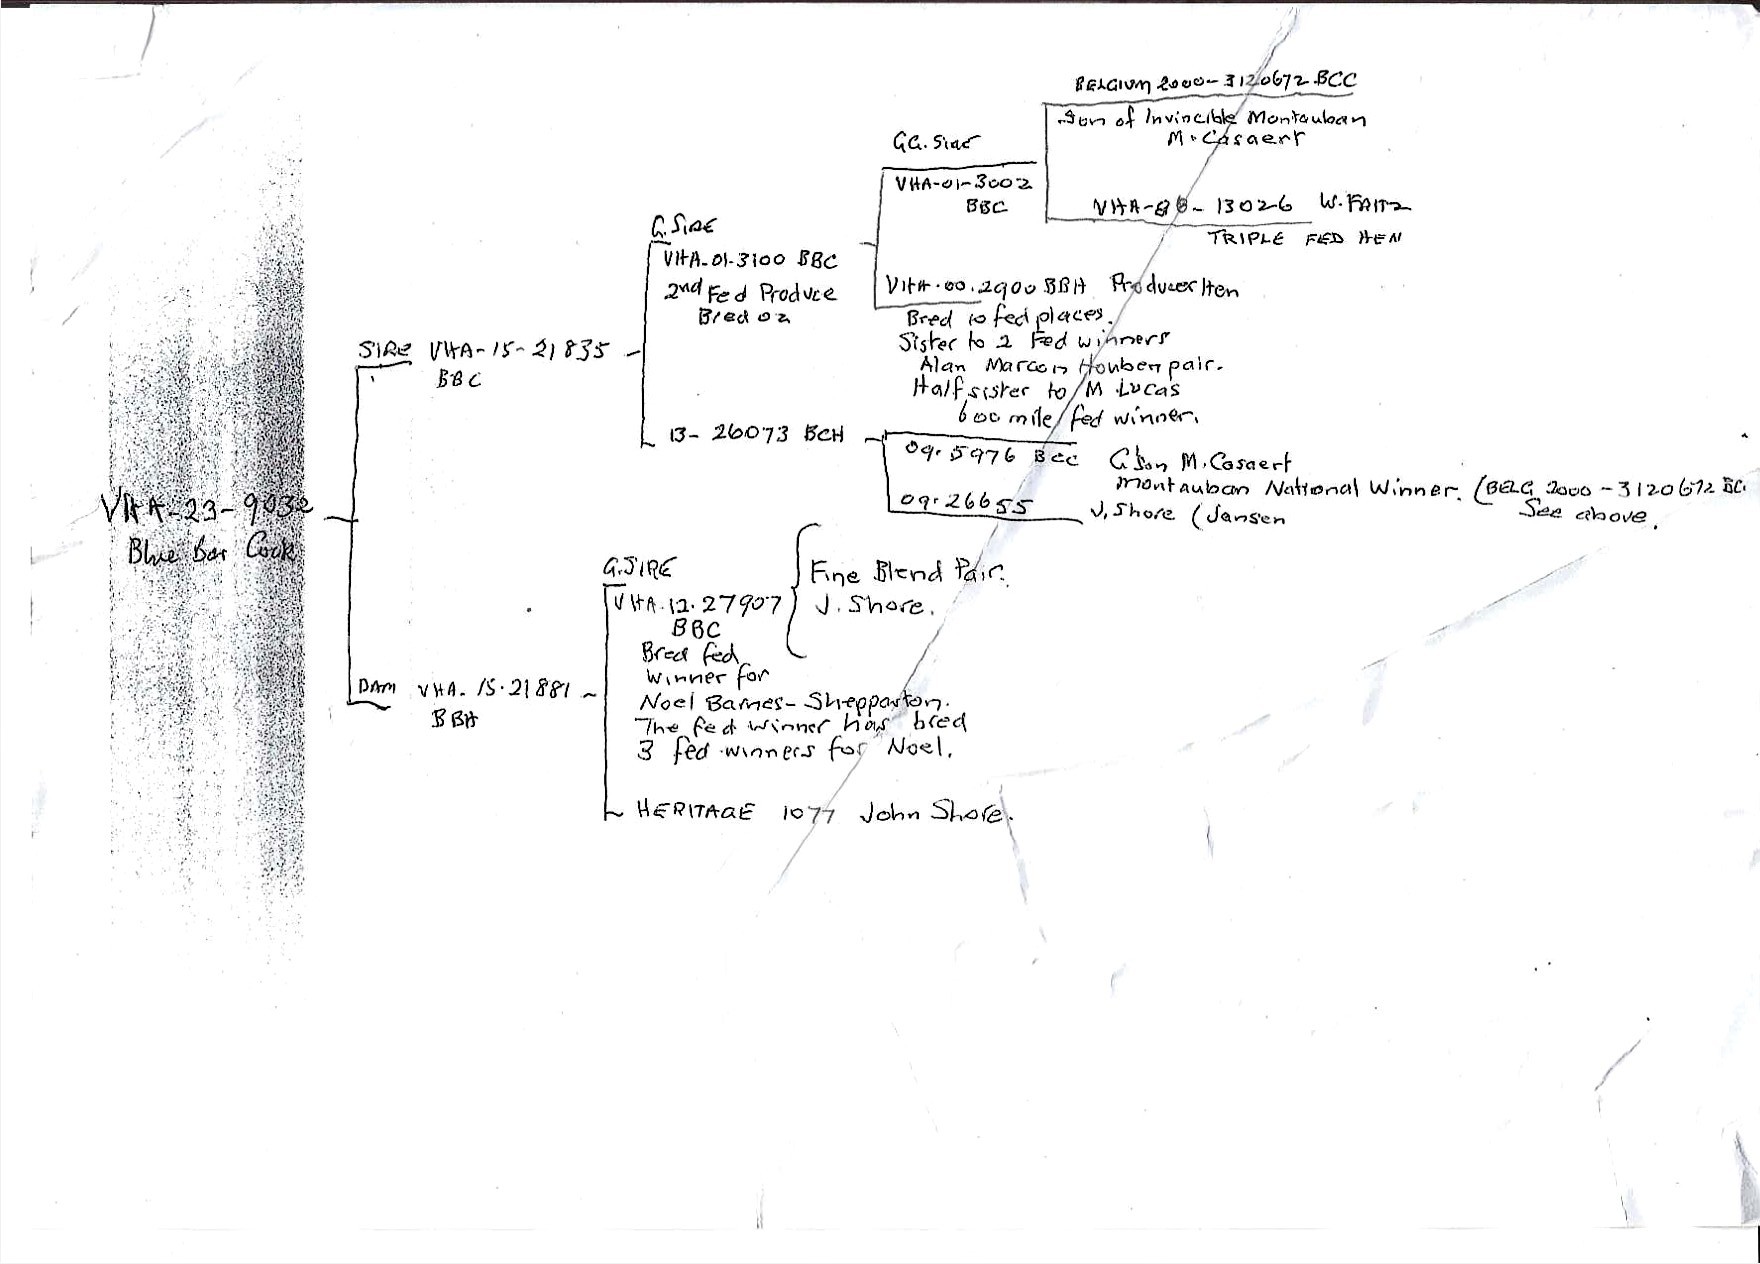 BELGIUM 2000-3120672 BCC
Son of Invincible Montauban
M. Casaert
GG. Sire
VHA-01-3002
BBC
VHA-86-13026 W. FAITZ
TRIPLE FED HEN
G. SIRE
VHA-01-3100 BBC
2nd Fed Produce
Bred 02
VHA.00.2900 BBH Producer Hen
Bred 10 fed places.
Sister to 2 Fed winners
Alan Marcon Houben pair.
Half sister to M Lucas
600 mile fed winner.
SIRE VHA-15-21835
BBC
13-26073 BCH
09.5976 BCC G Son M. Casaert
Montauban National Winner. (BELG 2000-3120672 BC.
See above.
09.26655 J. Shore (Jansen
VHA-23-9032
Blue Bar Cock
G. SIRE
VHA.12.27907
BBC
Fine Blend Pair.
J. Shore.
Bred fed
winner for
Noel Barnes-Shepparton.
The fed winner has bred
3 fed winners for Noel.
DAM VHA.15.21881
BBH
HERITAGE 1077 John Shore.